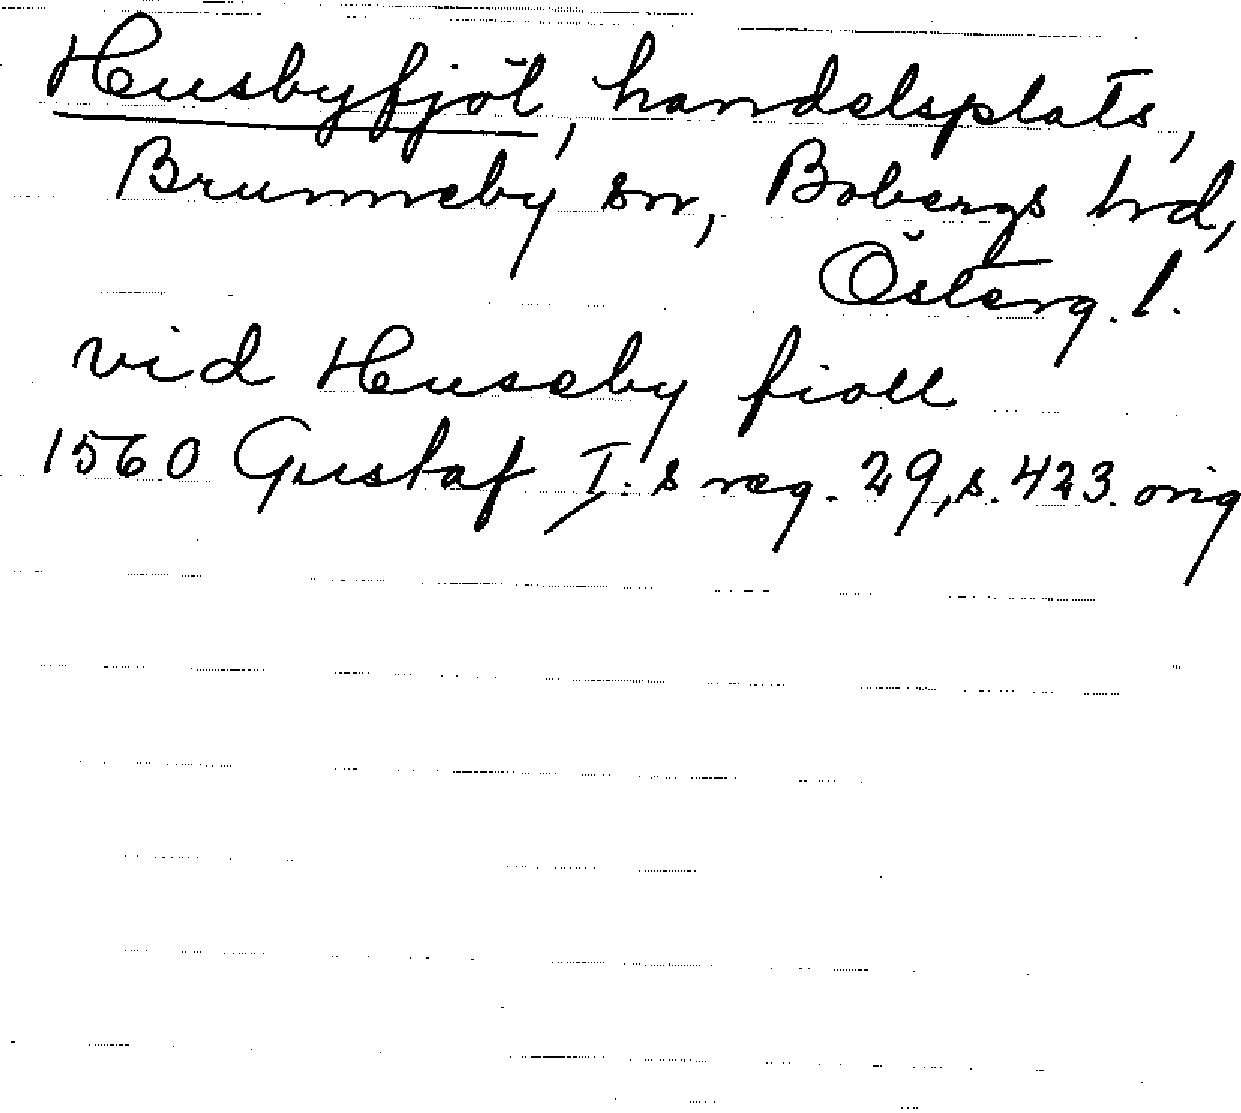 Husbyfjöl, handelsplats,
Brunneby sn, Bobergs hd,
Österg. l.
vid Huseby fioll
1560 Gustaf I:s reg. 29, s. 423. orig